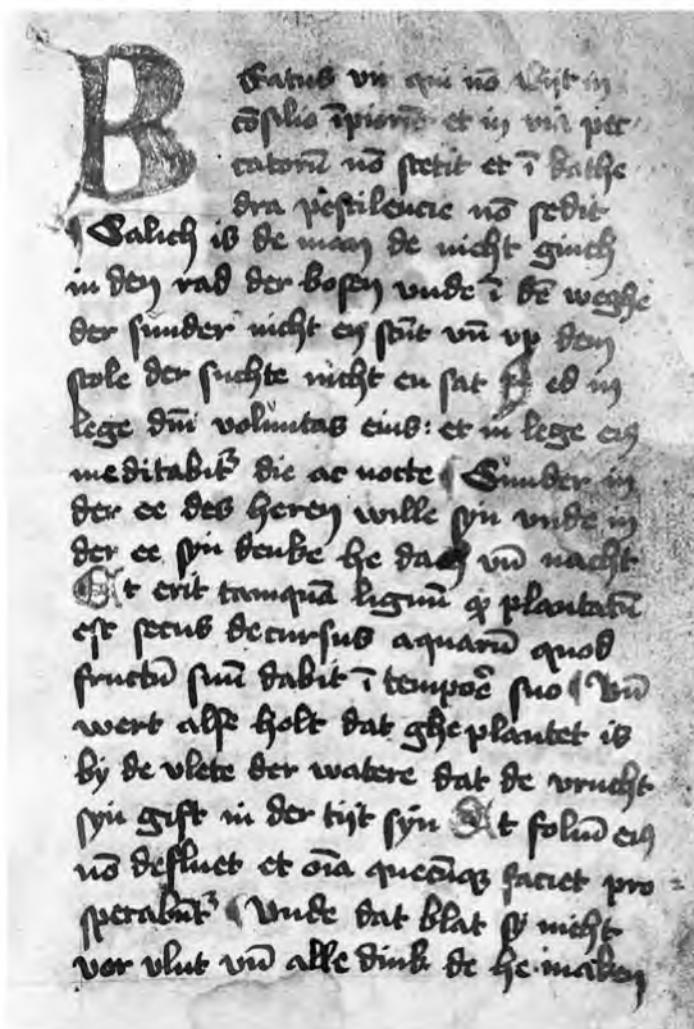 Beatus vir qui nō abijt in
cōsilio īpiorū et in via pec
catorū nō stetit et ī kathe
dra pestilencie nō sedit
¶ Salich is de man de nicht ginch
in den rad der bosen vnde ī dē weghe
der sunder nicht en stūt vn̄ vp dem
stole der suchte nicht en sat Sed in
lege dn̄i voluntas eius: et in lege eiꝯ
meditabit᷑ die ac nocte ¶ Sunder in
der ee des heren wille syn vnde in
der ee syn denke he dach vn̄ nacht
Et erit tamquā lignū qđ plantatū
est secus decursus aquarū quod
fructū suū dabit ī tempor̄e suo ¶ Vn̄
wert alse holt dat gheplantet is
by de vlete der watere dat de vrucht
syn gift in der tijt syn Et foliū eiꝯ
nō defluet et oīa quecūqꝫ faciet pro =
sperabūt᷑ ¶ Vnde dat blat sy nicht
vor vlut vn̄ alle dink de he maken